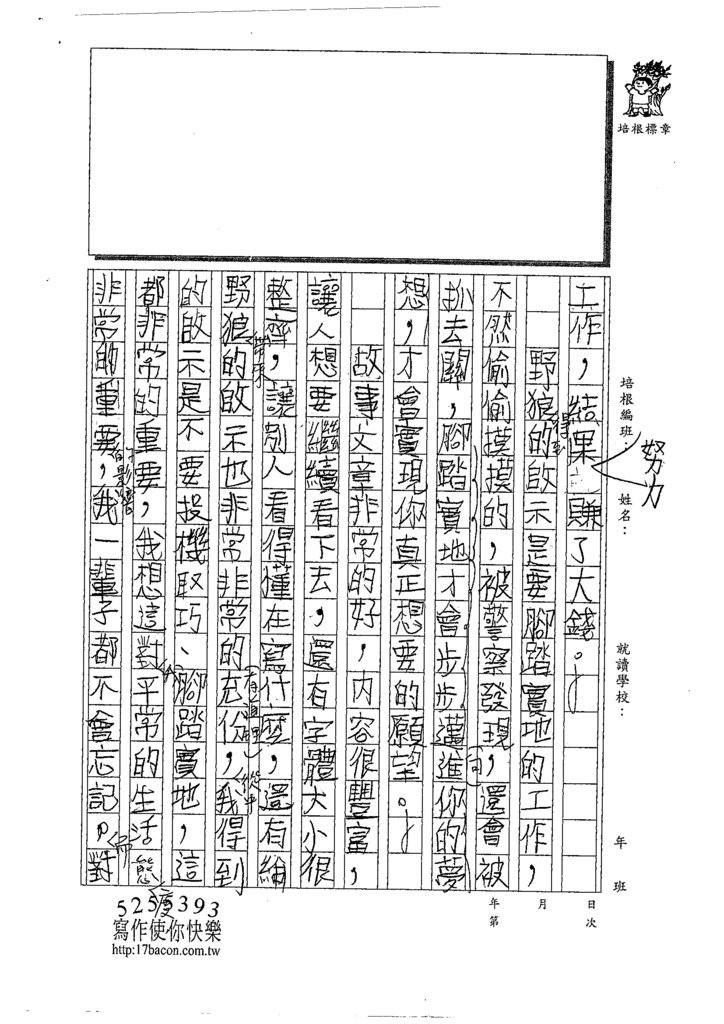 培根標章
培根編班：
姓名：
就讀學校：
年
班
日
次
月
年
第
努力
工作，結果賺了大錢。
野狼的啟示是要腳踏實地的工作，
不然偷偷摸摸的，被警察發現，還會被
抓去關，腳踏實地才會步步邁進你的夢
想，才會實現你真正想要的願望。
故事文章非常的好，內容很豐富，
讓人想要繼續看下去，還有字體大小很
整齊，讓別人看得懂在寫什麼，還有給
野狼的啟示也非常非常的充份，我得到
的啟示是不要投機取巧、腳踏實地，這
都非常的重要，我想這對平常的生活
態度
非常的重要，我一輩子都不會忘記。對
5255393
寫作使你快樂
http:17bacon.com.tw